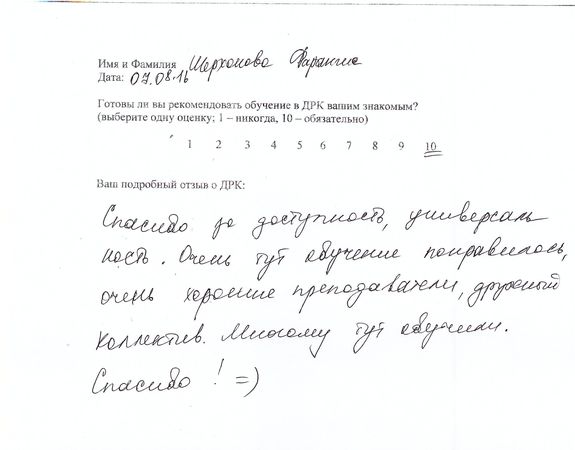 Имя и Фамилия Шерхонова Фарангис
Дата: 07.08.16
Готовы ли вы рекомендовать обучение в ДРК вашим знакомым?
(выберите одну оценку; 1 – никогда, 10 – обязательно)
1 2 3 4 5 6 7 8 9 10
Ваш подробный отзыв о ДРК:
Спасибо за доступность, универсаль
ность. Очень тут обучение понравилось,
очень хорошие преподаватели, дружный
коллектив. Многому тут обучили.
Спасибо! =)